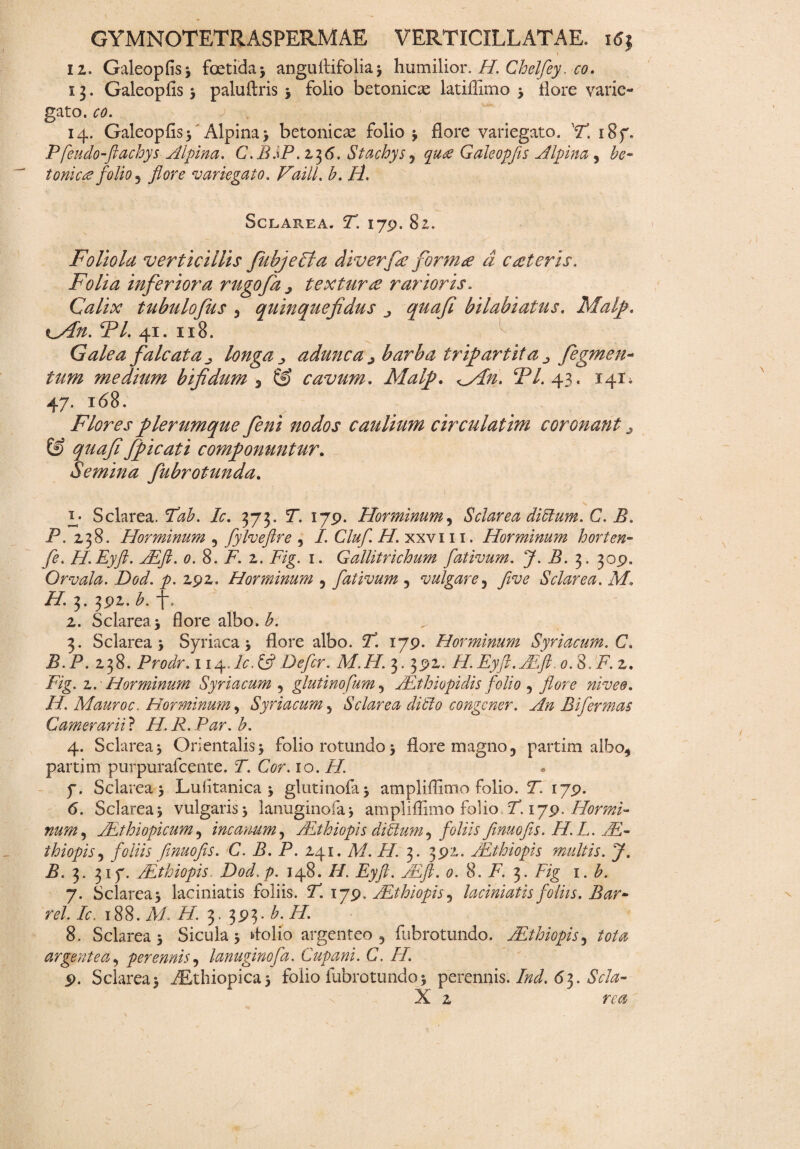 GYMNOTETRASPERMAE VERTICILLATAE. 163
12. Galeopſis; fœtida; anguſtifolia; humilior. H. Chelſey. co.
13. Galeopſis; paluſtris; folio betonicæ latiſſimo; flore varie-
gato. co.
14. Galeopſis; Alpina; betonicæ folio; flore variegato. T. 185.
Pſeudo-ſtachys Alpina. C.B.P. 236. Stachys, quæ Galeopſis Alpina, be-
tonicæ folio, flore variegato. Vaill. b. H.
SCLAREA. T. 179. 82.
Foliola verticillis ſubjecta diverſæ formæ à cæteris.
Folia inferiora rugoſa, texturæ rarioris.
Calix tubuloſus, quinquefidus, quaſi bilabiatus. Malp.
An. Pl. 41. 118.
Galea falcata, longa, adunca, barba tripartita, ſegmen-
tum medium bifidum, & cavum. Malp. An. Pl. 43. 141.
47. 168.
Flores plerumque ſeni nodos caulium circulatim coronant,
& quaſi ſpicati componuntur.
Semina ſubrotunda.
1. Sclarea. Tab. Ic. 373. T. 179. Horminum, Sclarea dictum. C. B.
P. 238. Horminum, ſylveſtre, I. Cluſ. H. XXVIII. Horminum horten-
ſe. H. Eyſt. Æſt. o. 8. F. 2. Fig. 1. Gallitrichum ſativum. J. B. 3. 309.
Orvala. Dod. p. 292. Horminum, ſativum, vulgare, ſive Sclarea. M.
H. 3. 392. b. †.
2. Sclarea; flore albo. b.
3. Sclarea; Syriaca; flore albo. T. 179. Horminum Syriacum. C.
B. P. 238. Prodr. 114. Ic. & Deſcr. M. H. 3. 392. H. Eyſt. Æſt. o. 8. F. 2.
Fig. 2. Horminum Syriacum, glutinoſum, Æthiopidis folio, flore niveo.
H. Mauroc. Horminum, Syriacum, Sclarea dicto congener. An Bifermas
Camerarii? H. R. Par. b.
4. Sclarea; Orientalis; folio rotundo; flore magno, partim albo,
partim purpuraſcente. T. Cor. 10. H.
5. Sclarea; Luſitanica; glutinoſa; ampliſſimo folio. T. 179.
6. Sclarea; vulgaris; lanuginoſa; ampliſſimo folio T. 179. Hormi-
num, Æthiopicum, incanum, Æthiopis dictum, foliis ſinuoſis. H. L. Æ-
thiopis, foliis ſinuoſis. C. B. P. 241. M. H. 3. 392. Æthiopis multis. J.
B. 3. 315. Æthiopis. Dod. p. 148. H. Eyſt. Æſt. o. 8. F. 3. Fig 1. b.
7. Sclarea; laciniatis foliis. T. 179. Æthiopis, laciniatis foliis. Bar-
rel. Ic. 188. M. H. 3. 393. b. H.
8. Sclarea; Sicula; folio argenteo, ſubrotundo. Æthiopis, tota
argentea, perennis, lanuginoſa. Cupani. C. H.
9. Sclarea; Æthiopica; folio ſubrotundo; perennis. Ind. 63. Scla-
X 2 rea